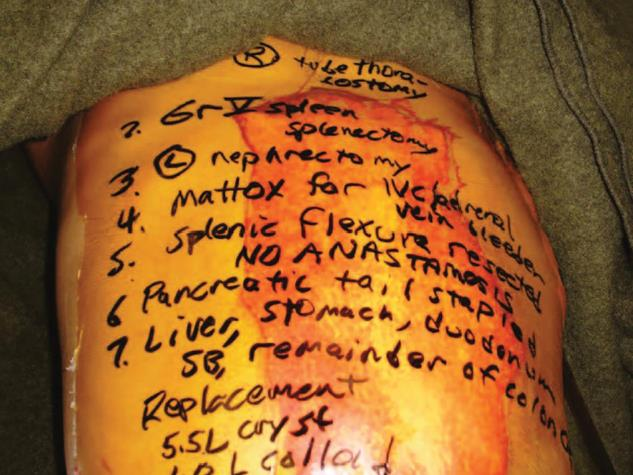 (R) tube thora-
costomy
2. Gr V spleen
splenectomy
3. (L) nephrectomy
4. Mattox for IVC/adrenal
vein bleeder
5. splenic flexure resected
NO ANASTAMOSIS
6 Pancreatic tail stapled
7. Liver, stomach, duodenum
SB, remainder of colon
Replacement
5.5L cryst
L colloid